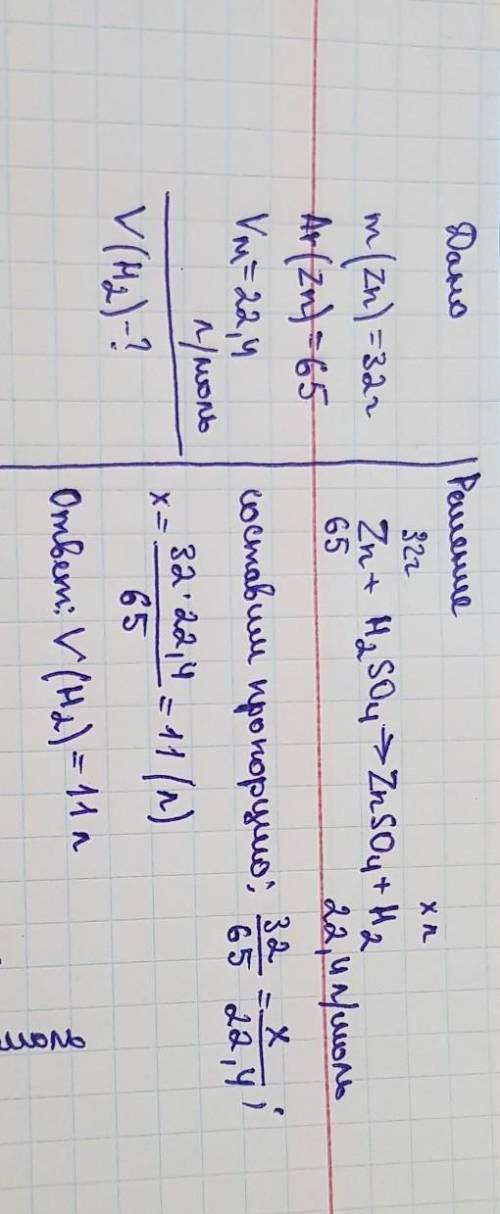 Дано
m(Zn)=32г
Ar(Zn)=65
Vm=22,4
л/моль
V(H₂)-?
Решение
32г x л
Zn + H₂SO₄ → ZnSO₄ + H₂
65 22,4 л/моль
составим пропорцию: 32/65 = x/22,4;
x = 32·22,4/65 = 11 (л)
Ответ: V(H₂) = 11 л